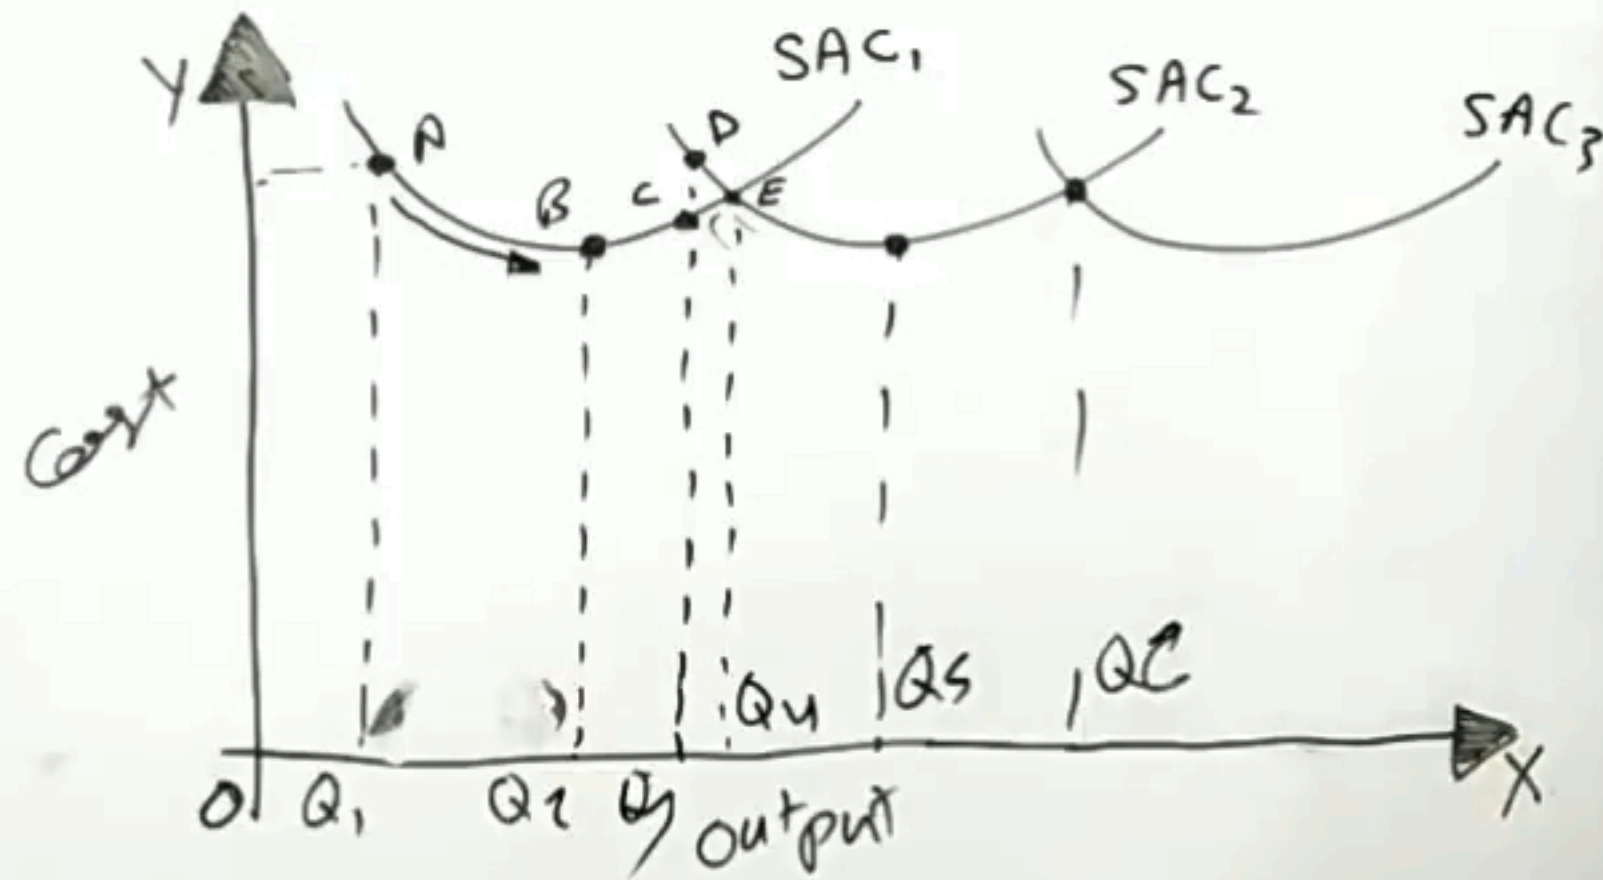 SAC₁
SAC₂
SAC₃
Y
A
D
B
C
E
Cost
Q4
Q5
O
Q₁
Q2
Q3
output
X